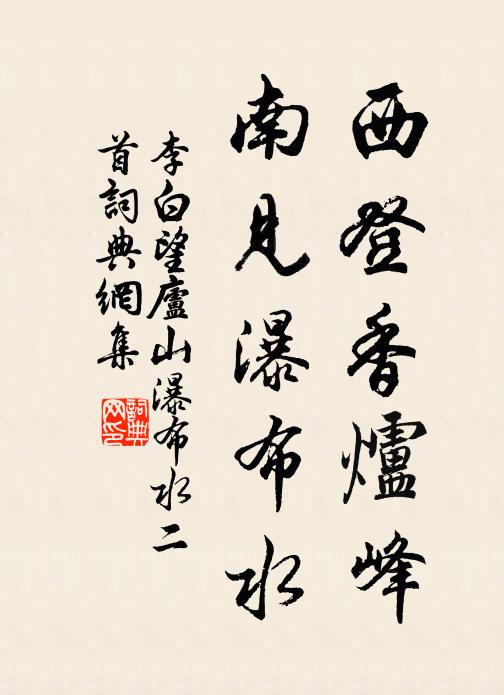 西登香爐峰
南見瀑布水
李白望廬山瀑布水二
首詞典網集
詞典
网印